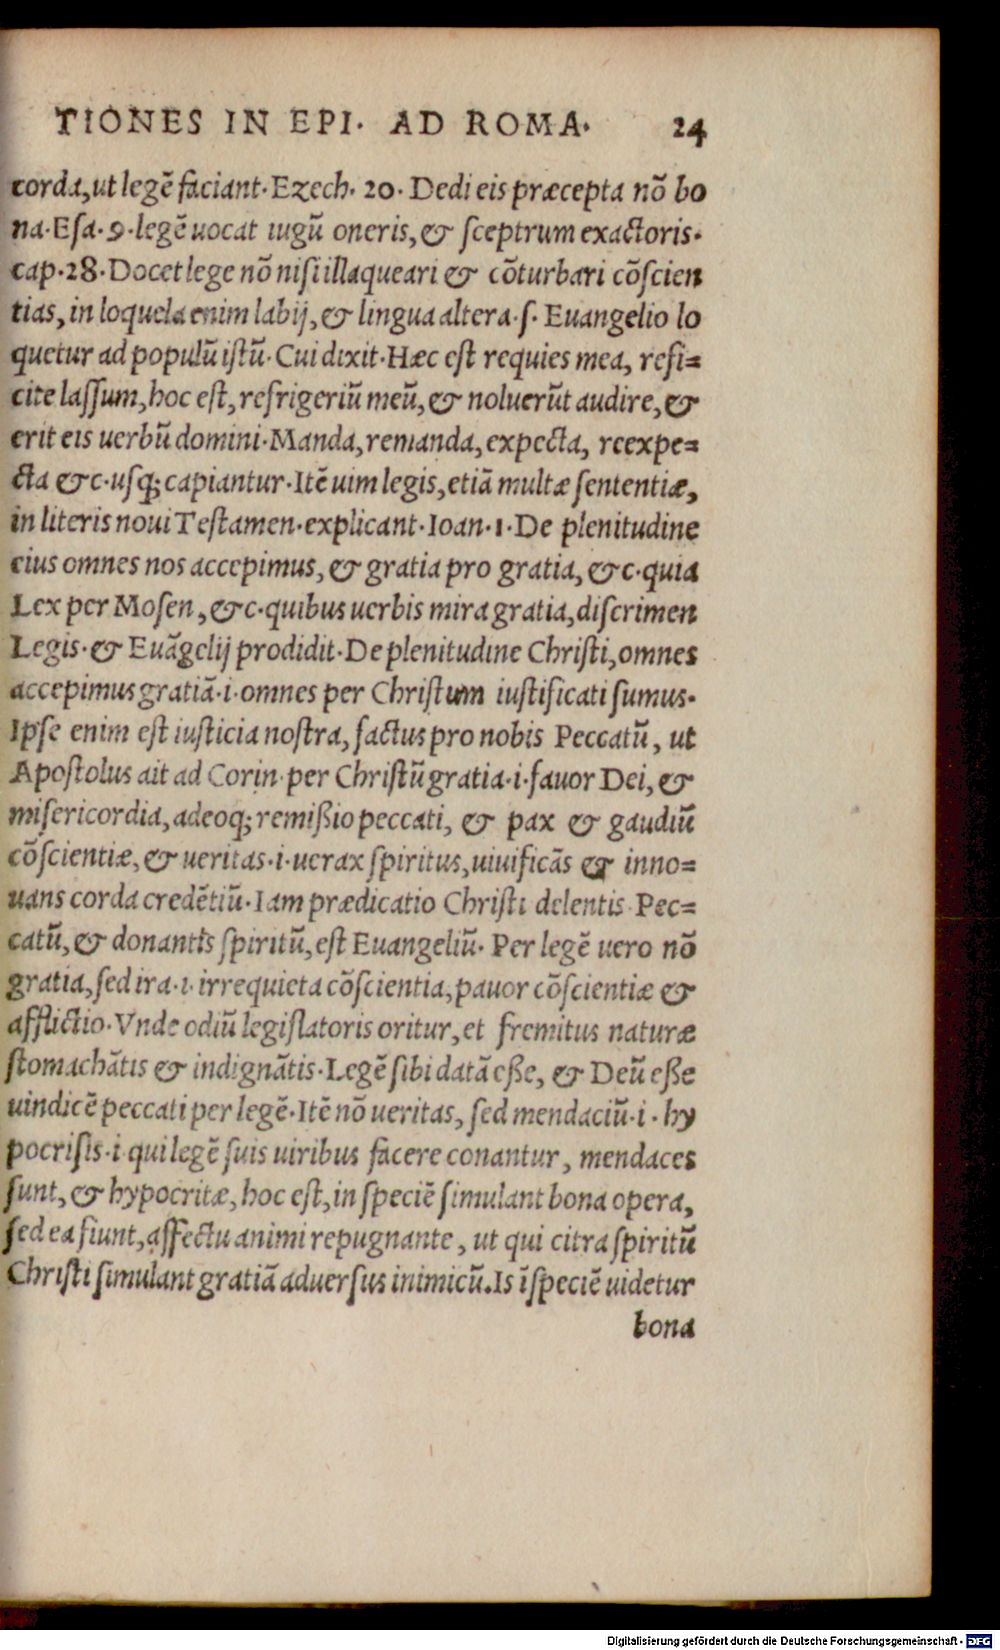 TIONES IN EPI. AD ROMA. 24
corda, ut legẽ faciant. Ezech. 20. Dedi eis præcepta nõ bo
na. Esa. 9. legẽ uocat iugũ oneris, & sceptrum exactoris.
cap. 28. Docet lege nõ nisi illaqueari & cõturbari cõscien
tias, in loquela enim labij, & lingua altera. s. Euangelio lo
quetur ad populũ istũ. Cui dixit. Hæc est requies mea, refi=
cite lassum, hoc est, refrigeriũ meũ, & noluerũt audire, &
erit eis uerbũ domini. Manda, remanda, expecta, reexpe=
cta &c. usq; capiantur. Itẽ uim legis, etiã multæ sententiæ,
in literis noui Testamen. explicant. Ioan. 1. De plenitudine
eius omnes nos accepimus, & gratia pro gratia, &c. quia
Lex per Mosen, &c. quibus uerbis mira gratia, discrimen
Legis. & Euãgelij prodidit. De plenitudine Christi, omnes
accepimus gratiã. i. omnes per Christum iustificati sumus.
Ipse enim est iusticia nostra, factus pro nobis Peccatũ, ut
Apostolus ait ad Corin. per Christũ gratia. i. fauor Dei, &
misericordia, adeoq; remißio peccati, & pax & gaudiũ
cõscientiæ, & ueritas. i. uerax spiritus, uiuificãs & inno=
uans corda credẽtiũ. Iam prædicatio Christi delentis Pec=
catũ, & donantis spiritũ, est Euangeliũ. Per legẽ uero nõ
gratia, sed ira. i. irrequieta cõscientia, pauor cõscientiæ &
afflictio. Vnde odiũ legislatoris oritur, et fremitus naturæ
stomachãtis & indignãtis. Legẽ sibi datã eße, & Deũ eße
uindicẽ peccati per legẽ. Itẽ nõ ueritas, sed mendaciũ. i. hy
pocrisis. i. qui legẽ suis uiribus facere conantur, mendaces
sunt, & hypocritæ, hoc est, in speciẽ simulant bona opera,
sed ea fiunt, affectu animi repugnante, ut qui citra spiritũ
Christi simulant gratiã aduersus inimicũ. Is ĩ speciẽ uidetur
bona
Digitalisierung gefördert durch die Deutsche Forschungsgemeinschaft - DFG